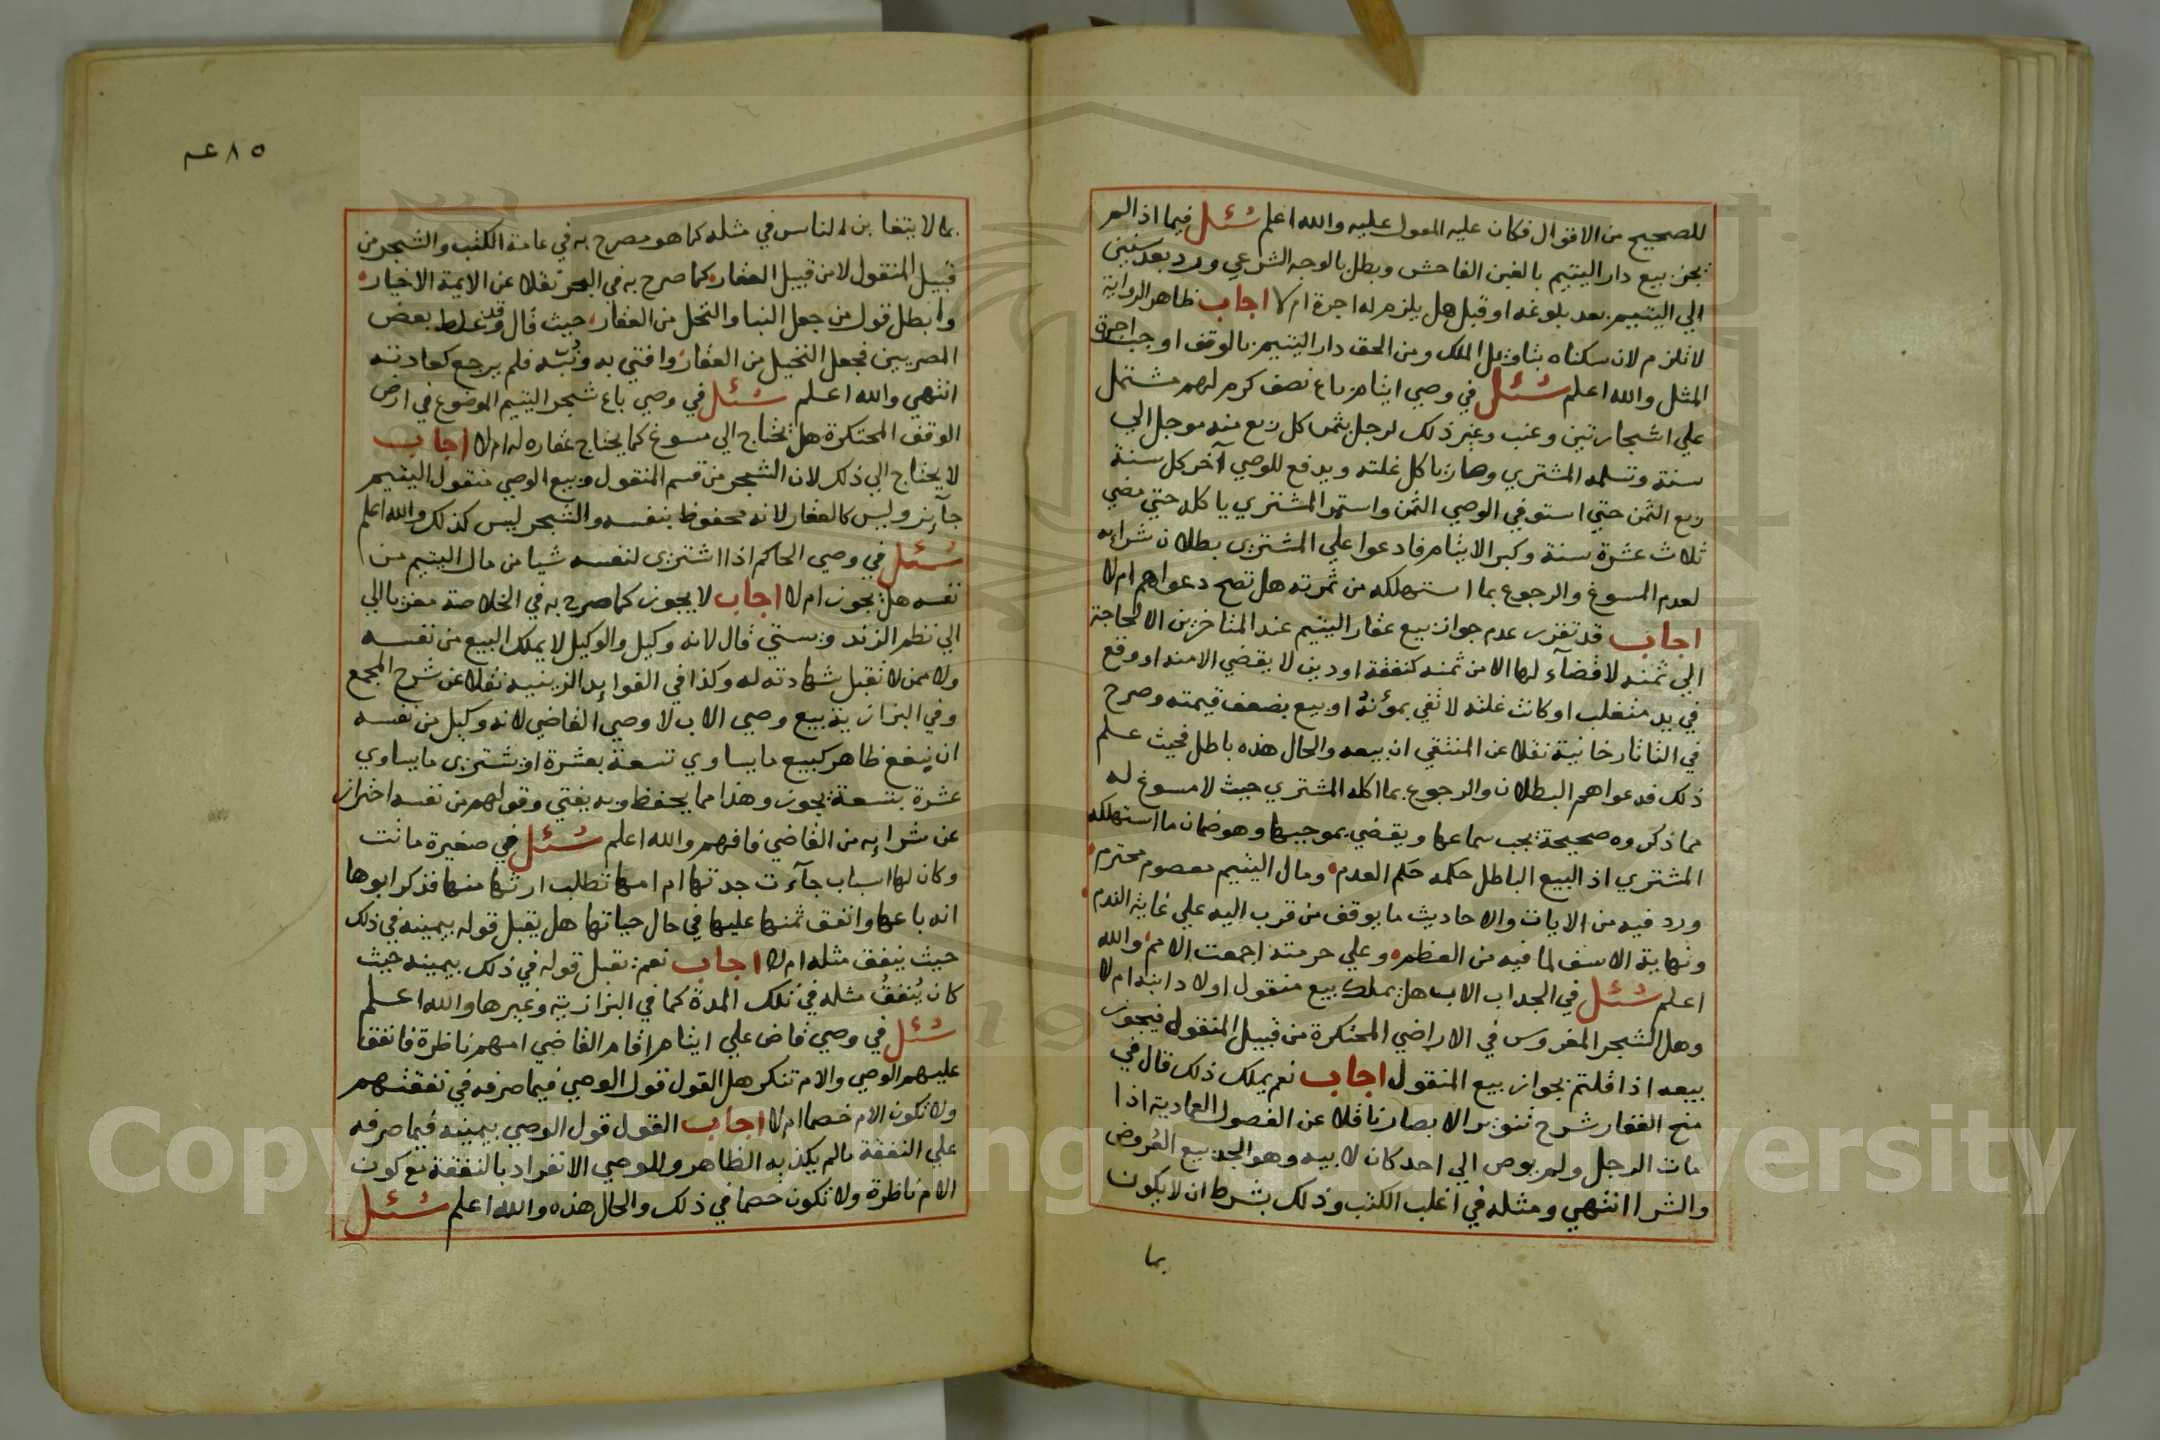 للصحيح من الاقوال فكان عليه المعول عليه والله اعلم سئل فيما اذا لم
يجز بيع دار اليتيم بالغبن الفاحش وبطل بالوجه الشرعي ورد بعد سنين
الي اليتيم بعد بلوغه او قبل هل يلزم له اجرة ام لا اجاب ظاهر الرواية
لا تلزم لان سكناه بتاويل الملك ومن الحق دار اليتيم بالوقف اوجب اجرة
المثل والله اعلم سئل في وصي ايتام باع نصف كرم لهم مشتمل
علي اشجار تين وعنب وغير ذلك لرجل بثمن كل ربع منه موجل الي
سنة وتسلمه المشتري وصار ياكل غلته ويدفع للوصي آخر كل سنة
ربع الثمن حتي استوفي الوصي الثمن واستمر المشتري ياكله حتي مضي
ثلاث عشرة سنة وكبر الايتام فادعوا علي المشتري بطلان شرايه
لعدم المسوغ والرجوع بما استهلكه من ثمرته هل تصح دعواهم ام لا
اجاب قد تقرر عدم جواز بيع عقار اليتيم عند المتاخرين الا لحاجة
الي ثمنه لا قضآء لها الا من ثمنه كنفقة او دين لا يقضي الا منه او وقع
في يد متغلب او كانت غلته لا تفي بمؤنته او بيع بضعف قيمته وصرح
في التاتارخانية نقلا عن المنتقي ان بيعه والحال هذه باطل فحيث علم
ذلك فدعواهم البطلان والرجوع بما اكله المشتري حيث لا مسوغ له
مما ذكروه صحيحة يجب سماعها ويقضي بموجبها وهو ضمان ما استهلكه
المشتري اذ البيع الباطل حكمه حكم العدم ومال اليتيم معصوم محترم
ورد فيه من الايات والاحاديث ما يوقف من قرب اليه علي غاية الندم
ونهاية الاسف لما فيه من العظم وعلي حرمته اجمعت الامم والله
اعلم سئل في الجد اب الاب هل يملك بيع منقول اولاد ابنه ام لا
وهل الشجر المغروس في الاراضي المحتكرة من قبيل المنقول فيجوز
بيعه اذا قلتم بجواز بيع المنقول اجاب نعم يملك ذلك قال في
منح الغفار شرح تنوير الابصار ناقلا عن الفصول العمادية اذا
مات الرجل ولم يوص الي احد كان لابيه وهو الجد بيع العروض
والشرا انتهي ومثله في اغلب الكتب وذلك بشرط ان لا يكون
بما
٨٥ عم
بما لا يتغابن الناس في مثله كما هو مصرح به في عامة الكتب والشجر من
قبيل المنقول لا من قبيل العقار كما صرح به في البحر نقلا عن الايمة الاخيار
وابطل قول من جعل البنا والنخل من العقار حيث قال وقد غلط بعض
المصريين فجعل النخيل من العقار وافتي به ونبه فلم يرجع كعادته
انتهي والله اعلم سئل في وصي باع شجر اليتيم الموضوع في ارض
الوقف المحتكرة هل يحتاج الي مسوغ كما يحتاج عقاره له ام لا اجاب
لا يحتاج الي ذلك لان الشجر من قسم المنقول وبيع الوصي منقول اليتيم
جآيز وليس كالعقار لانه محفوظ بنفسه والشجر ليس كذلك والله اعلم
سئل في وصي الحاكم اذا اشتري لنفسه شيا من مال اليتيم من
نفسه هل يجوز ام لا اجاب لا يجوز كما صرح به في الخلاصة معزيا الي
الي نظم الزندوستي قال لانه وكيل والوكيل لا يملك البيع من نفسه
ولا ممن لا تقبل شهادته له وكذا في الفوايد الزينيه نقلا عن شرح المجمع
وفي البزازية بيع وصي الاب لا وصي القاضي لانه وكيل من نفسه
ان ينفع ظاهر كبيع ما يساوي تسعة بعشرة او يشتري ما يساوي
عشرة بتسعة يجوز وهذا مما يحفظ وبه يفتي وقولهم من نفسه احتراز
عن شرايه من القاضي فافهم والله اعلم سئل في صغيرة ماتت
وكان لها اسباب جآءت جدتها ام امها تطلب ارثها منها فذكر ابوها
انه باعها وانفق ثمنها عليها في حال حياتها هل يقبل قوله بيمينه في ذلك
حيث ينفق مثله ام لا اجاب نعم يقبل قوله في ذلك بيمينه حيث
كان ينفق مثله في تلك المدة كما في البزازية وغيرها والله اعلم
سئل في وصي قاض علي ايتام اقام القاضي امهم ناظرة فانفقا
عليهم الوصي والام تنكر هل القول قول الوصي فيما صرفه في نفقتهم
ولا تكون الام خصما ام لا اجاب القول قول الوصي بيمينه فيما صرفه
علي النفقة ما لم يكذبه الظاهر وللوصي الانفراد بالنفقة مع كون
الام ناظرة ولا تكون خصما في ذلك والحال هذه والله اعلم سئل